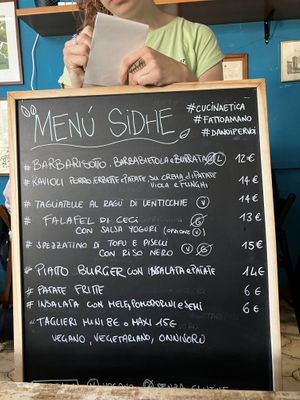 MENÚ SIDHE
#CUCINAETICA
#FATTOAMANO
#DANOIPERVOI
# BARBARISOTTO, BARBABIETOLA E BURRATA L 12 €
# RAVIOLI PORRO, ERBETTE E PATATE, SU CREMA DI PATATE 14 €
VIOLA E FUNGHI
# TAGLIATELLE AL RAGÙ DI LENTICCHIE V 14 €
# FALAFEL DI CECI 13 €
CON SALSA YOGURT (OPZIONE V) G
# SPEZZATINO DI TOFU E PISELLI 15 €
CON RISO NERO V G
# PIATTO BURGER CON INSALATA E PATATE 14 €
# PATATE FRITTE 6 €
# INSALATA CON MELE, POMODORINI E SEMI 6 €
# TAGLIERI MINI 8€ O MAXI 15€
VEGANO, VEGETARIANO, ONNIVORO
V VEGANO G SENZA GLUTINE